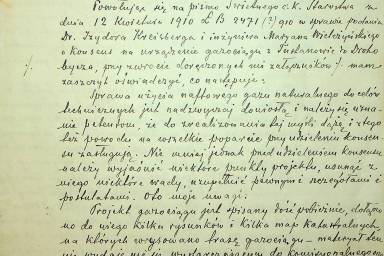 Powołując się na pismo Świetnego c.k. Starostwa z
dnia 12 Kwietnia 1910 L B 2971 (?) 910 w sprawie podania
Dr. Izydora Kreisberga i inżyniera Maryana Wieleżyńskiego
o konsens na urządzenie gazociągu z Tustanowic do Droho
bycza, przy zwrocie doręczonych mi załączników /. mam
zaszczyt oświadczyć, co następuje:
Sprawa użycia naftowego gazu naturalnego do celów
technicznych jest nadzwyczaj doniosłą i należy się uzna-
nie petentom, że do zrealizowania tej myśli dążą, i z tego
też powodu na wszelkie poparcie przy udzieleniu konsen-
su zasługują. Nie mniej jednak przed udzieleniem konsensu
należy wyjaśnić niektóre punkty projektu, usunąć z
niego niektóre wady, uzupełnić pewnymi szczegółami i
postulatami. Oto moje uwagi:
Projekt gazociągu jest spisany dość pobieżnie, dołączo
no do niego kilka rysunków i kilka map katastralnych,
na których wrysowano trasę gazociągu – materyał ten
nie wydaje mi się wystarczającym do komisyonalnego